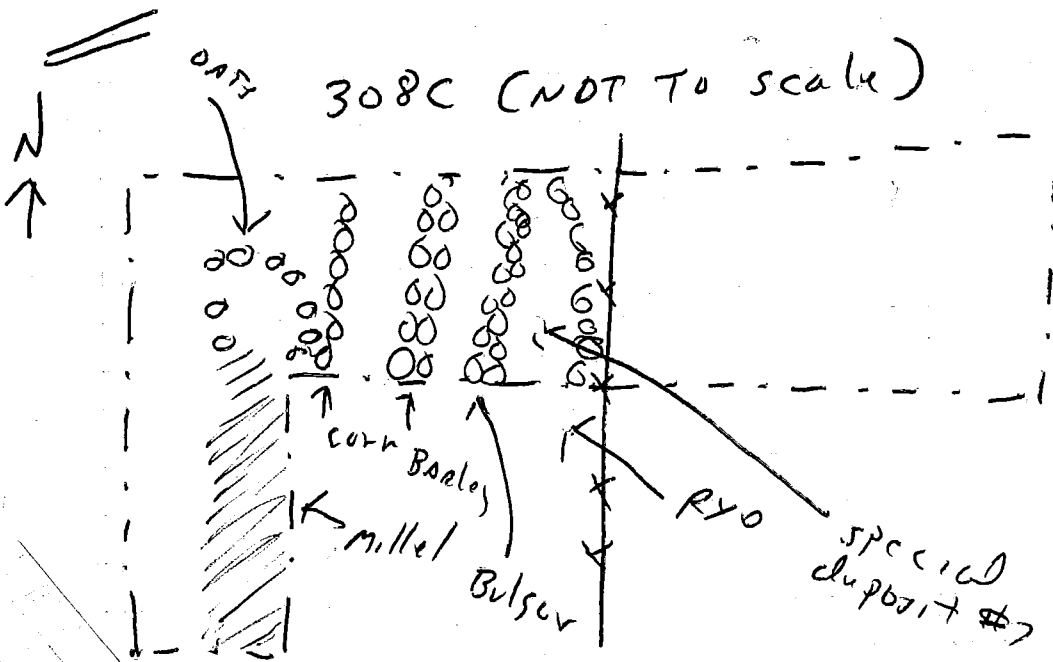 OATS
308C (NOT To scale)
N
Corn
Barley
Millet
Bulgur
RYO
special
deposit #7